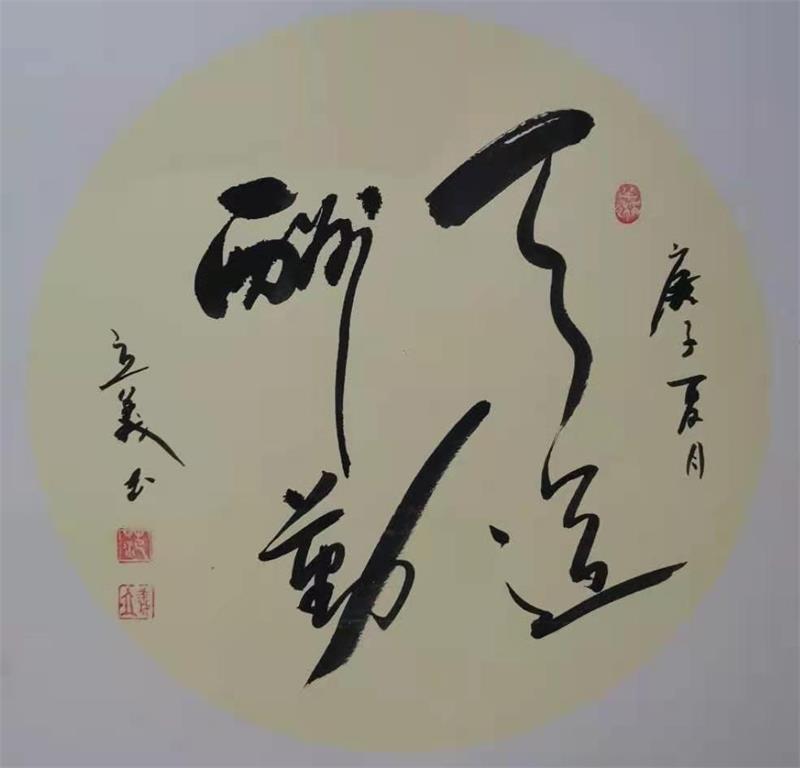 庚子夏月
天道
酬勤
立義书